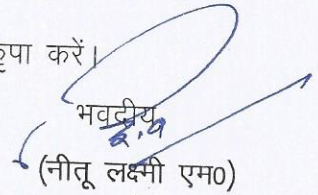 कृपा करें।
भवदीय
(नीतू लक्ष्मी एम0)